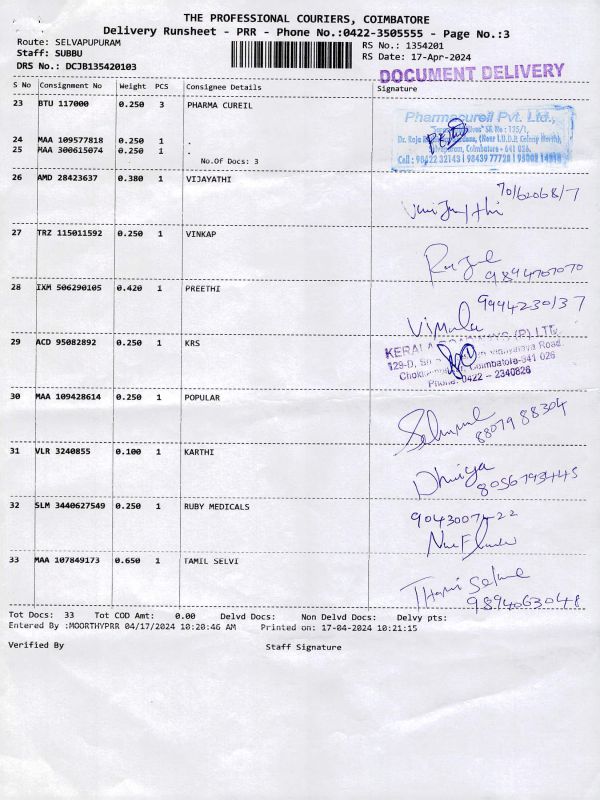 THE PROFESSIONAL COURIERS, COIMBATORE
Delivery Runsheet - PRR - Phone No.:0422-3505555 - Page No.:3
Route: SELVAPUPURAM
RS No.: 1354201
Staff: SUBBU
RS Date: 17-Apr-2024
DRS No.: DCJB135420103
DOCUMENT DELIVERY
S No Consignment No Weight PCS Consignee Details Signature
23 BTU 117000 0.250 3 PHARMA CUREIL
Pharma cureil Pvt. Ltd.,
24 MAA 109578818 0.250 1 .
25 MAA 300615074 0.250 1 .
Coimbatore - 641 026.
No.Of Docs: 3
Cell : 98422 32143 | 98439 77728 |
26 AMD 28423637 0.380 1 VIJAYATHI
27 TRZ 115011592 0.250 1 VINKAP
9894707070
28 IXM 506290105 0.420 1 PREETHI
9944230137
Vimala
29 ACD 95082892 0.250 1 KRS
KERALA (P) LTD.
129-D, Road,
Coimbatore-641 026
Phone: 0422 - 2340826
30 MAA 109428614 0.250 1 POPULAR
8807988304
31 VLR 3240855 0.100 1 KARTHI
Dhivya
8056793445
32 SLM 3440627549 0.250 1 RUBY MEDICALS
33 MAA 107849173 0.650 1 TAMIL SELVI
9894063048
Tot Docs: 33 Tot COD Amt: 0.00 Delvd Docs: Non Delvd Docs: Delvy pts:
Entered By :MOORTHYPRR 04/17/2024 10:20:46 AM Printed on: 17-04-2024 10:21:15
Verified By Staff Signature